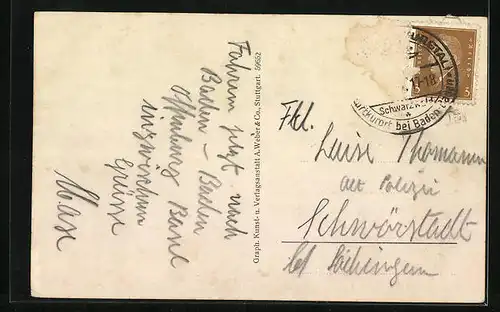 Fahren jetzt nach
Baden-Baden
Offenburg Basel
inzwischen
Grüsse
Max
Graph. Kunst- u. Verlagsanstalt A. Weber & Co., Stuttgart. 59652
Schwarzw.
bei Baden-
5
Frl.
Luise Thomann
alt Polizei
Schwörstadt
bei Säckingen